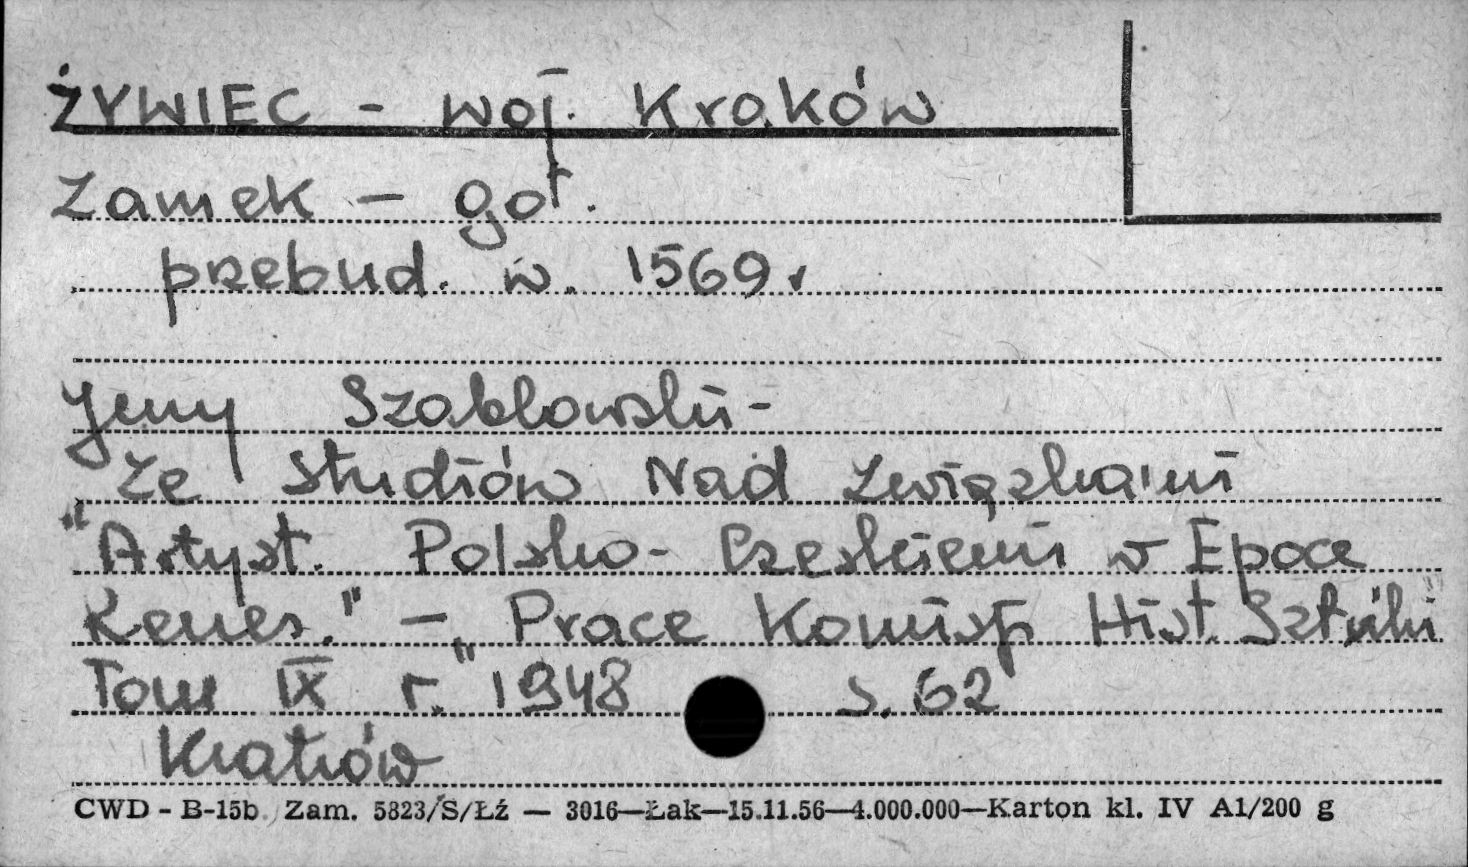 ŻYWIEC - woj. Kraków
Zamek - got.
przebud. w. 1569r
Jerzy Szabłowski -
Ze Studiów Nad Związkami
"Artyst. Polsko - Czeskiemi w Epoce
Renes." - "Prace Komisji Hist. Sztuki"
Tom IX r. 1948 s. 62
Kraków
CWD - B-15b Zam. 5823/S/Łź — 3016—Łak—15.11.56—4.000.000—Karton kl. IV A1/200 g